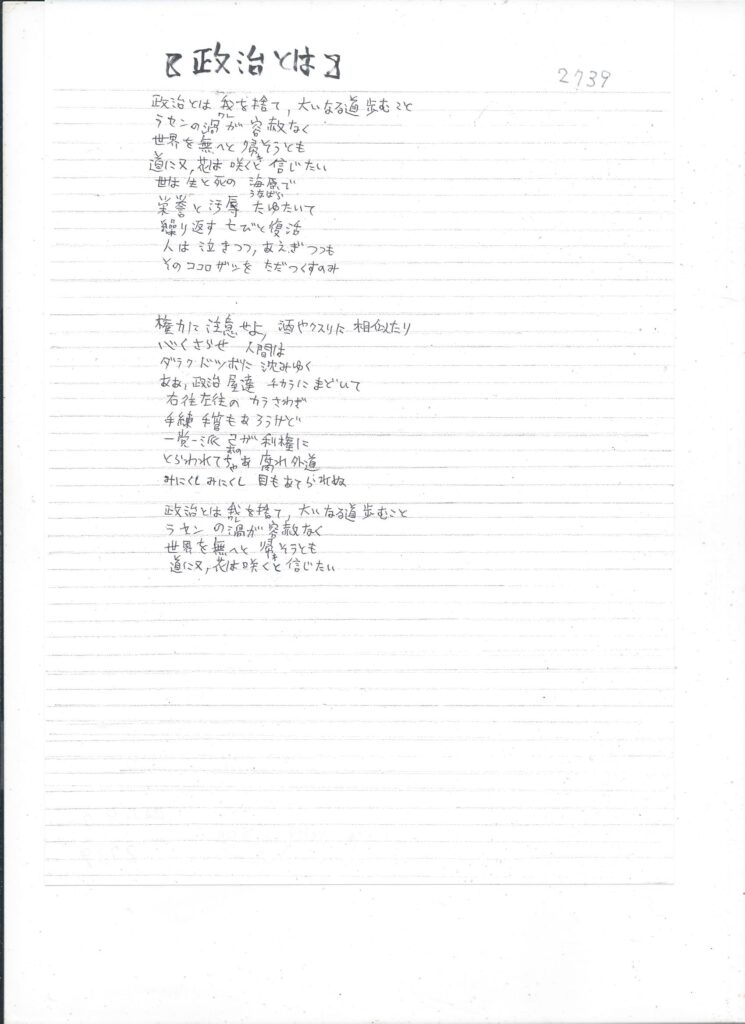 【政治とは】
2739
政治とは 我を捨て,大いなる道 歩むこと
ラセンの渦が 容赦なく
世界を無へと 帰そうとも
道に又,花は 咲くと 信じたい
世は 生と死の 海原で
うなばら
栄誉と汚辱 たゆたいて
繰り返す 亡びと復活
人は 泣きつつ,あえぎつつも
そのココロザシを ただつくすのみ
権力に 注意せよ, 酒やクスリに 相似たり
心くさらせ 人間は
ダラク ドツボに 沈みゆく
ああ,政治屋達 チカラに まどいて
右往左往の カラさわぎ
手練 手管もあろうけど
一党一派 己が利権に
とらわれてちゃあ 腐れ外道
みにくし みにくし 目もあてられぬ
政治とは 我を捨て,大いなる道 歩むこと
ラセン の渦が 容赦なく
世界を 無へと 帰そうとも
道に又,花は 咲くと 信じたい